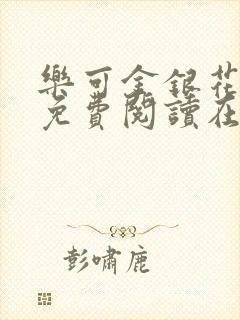 樂可金銀花
免費閱讀在
彭嘯鹿